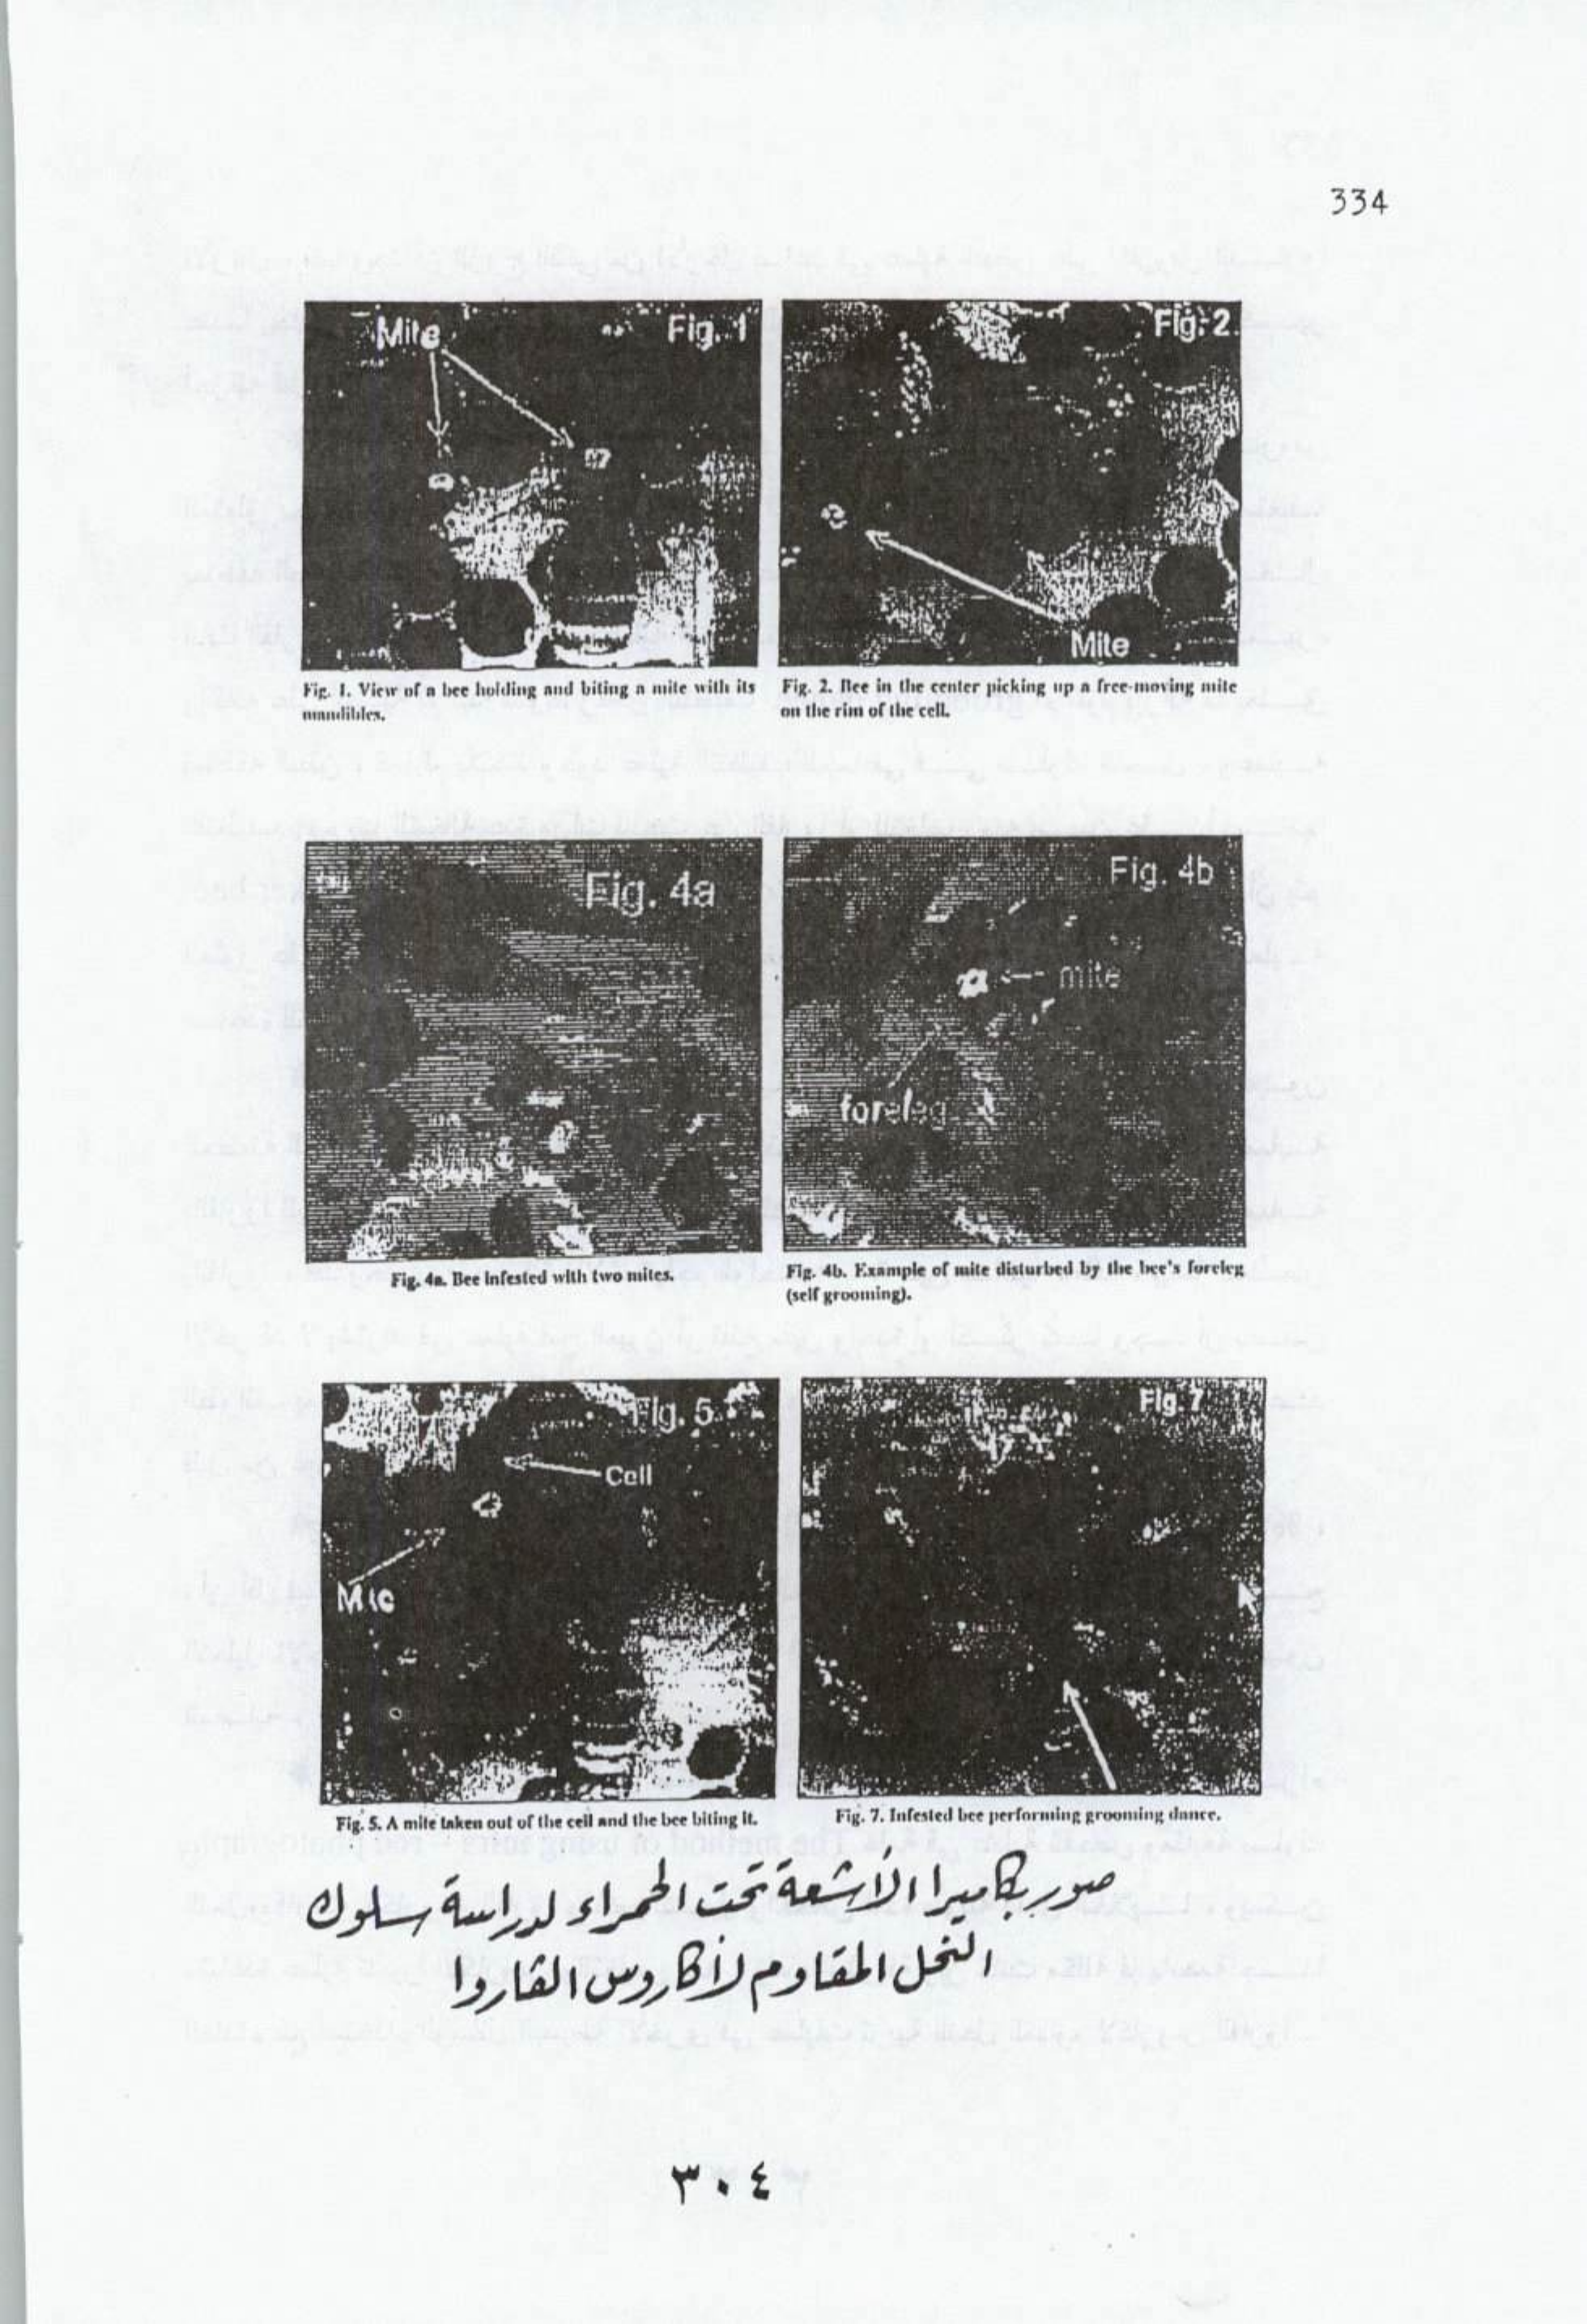 334
Mite
Fig. 1
Fig. 2
Mite
Fig. 1. View of a bee holding and biting a mite with its
mandibles.
Fig. 2. Bee in the center picking up a free-moving mite
on the rim of the cell.
Fig. 4a
Fig. 4b
mite
foreleg
Fig. 4a. Bee infested with two mites.
Fig. 4b. Example of mite disturbed by the bee's foreleg
(self grooming).
Fig. 5
Cell
Mite
Fig. 7
Fig. 5. A mite taken out of the cell and the bee biting it.
Fig. 7. Infested bee performing grooming dance.
صور بكاميرا الأشعة تحت الحمراء لدراسة سلوك
النحل المقاوم لأكاروس الفاروا
٣٠٤